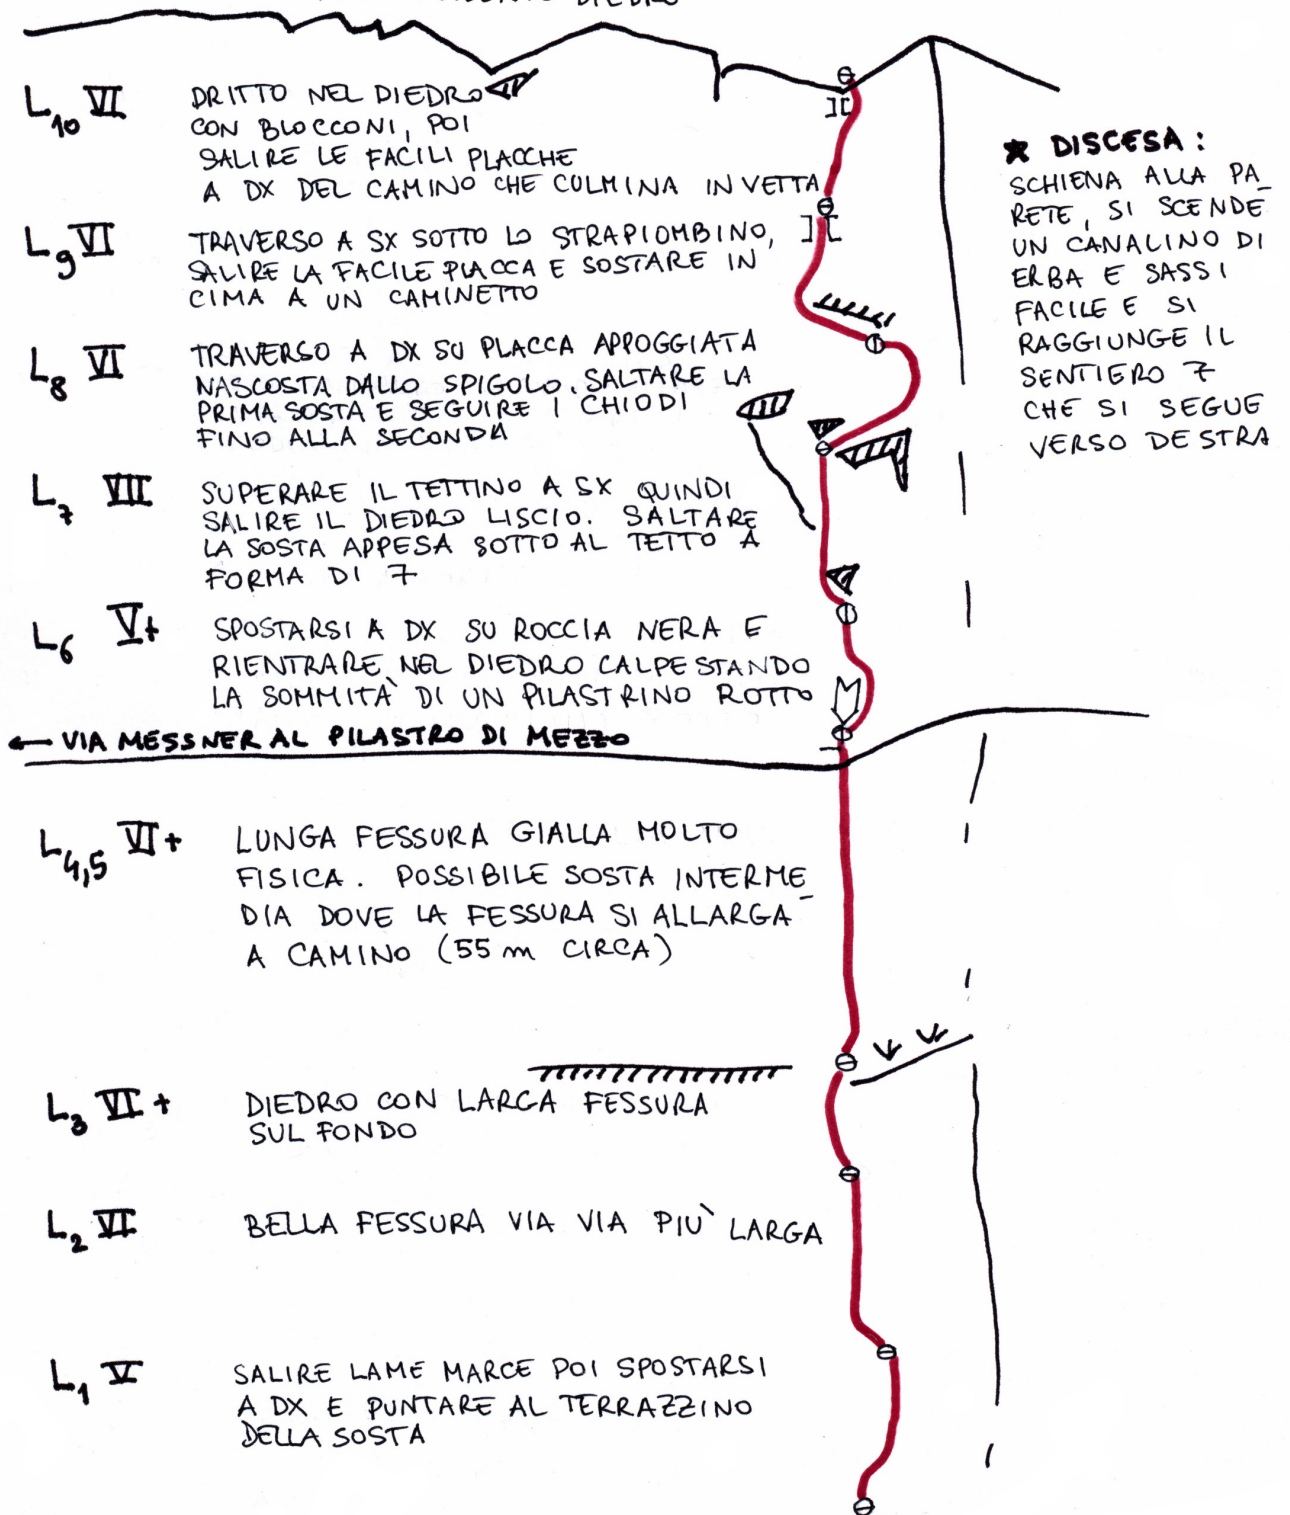 DIEDRO
L10 VI DRITTO NEL DIEDRO
CON BLOCCONI, POI
SALIRE LE FACILI PLACCHE
A DX DEL CAMINO CHE CULMINA IN VETTA
L9 VI TRAVERSO A SX SOTTO LO STRAPIOMBINO,
SALIRE LA FACILE PLACCA E SOSTARE IN
CIMA A UN CAMINETTO
L8 VI TRAVERSO A DX SU PLACCA APPOGGIATA
NASCOSTA DALLO SPIGOLO. SALTARE LA
PRIMA SOSTA E SEGUIRE I CHIODI
FINO ALLA SECONDA
L7 VII SUPERARE IL TETTINO A SX QUINDI
SALIRE IL DIEDRO LISCIO. SALTARE
LA SOSTA APPESA SOTTO AL TETTO A
FORMA DI 7
L6 V+ SPOSTARSI A DX SU ROCCIA NERA E
RIENTRARE NEL DIEDRO CALPESTANDO
LA SOMMITÀ DI UN PILASTRINO ROTTO
← VIA MESSNER AL PILASTRO DI MEZZO
L4,5 VI+ LUNGA FESSURA GIALLA MOLTO
FISICA. POSSIBILE SOSTA INTERME_
DIA DOVE LA FESSURA SI ALLARGA
A CAMINO (55 m CIRCA)
L3 VI+ DIEDRO CON LARGA FESSURA
SUL FONDO
L2 VI BELLA FESSURA VIA VIA PIÙ LARGA
L1 V SALIRE LAME MARCE POI SPOSTARSI
A DX E PUNTARE AL TERRAZZINO
DELLA SOSTA
★ DISCESA:
SCHIENA ALLA PA_
RETE, SI SCENDE
UN CANALINO DI
ERBA E SASSI
FACILE E SI
RAGGIUNGE IL
SENTIERO 7
CHE SI SEGUE
VERSO DESTRA